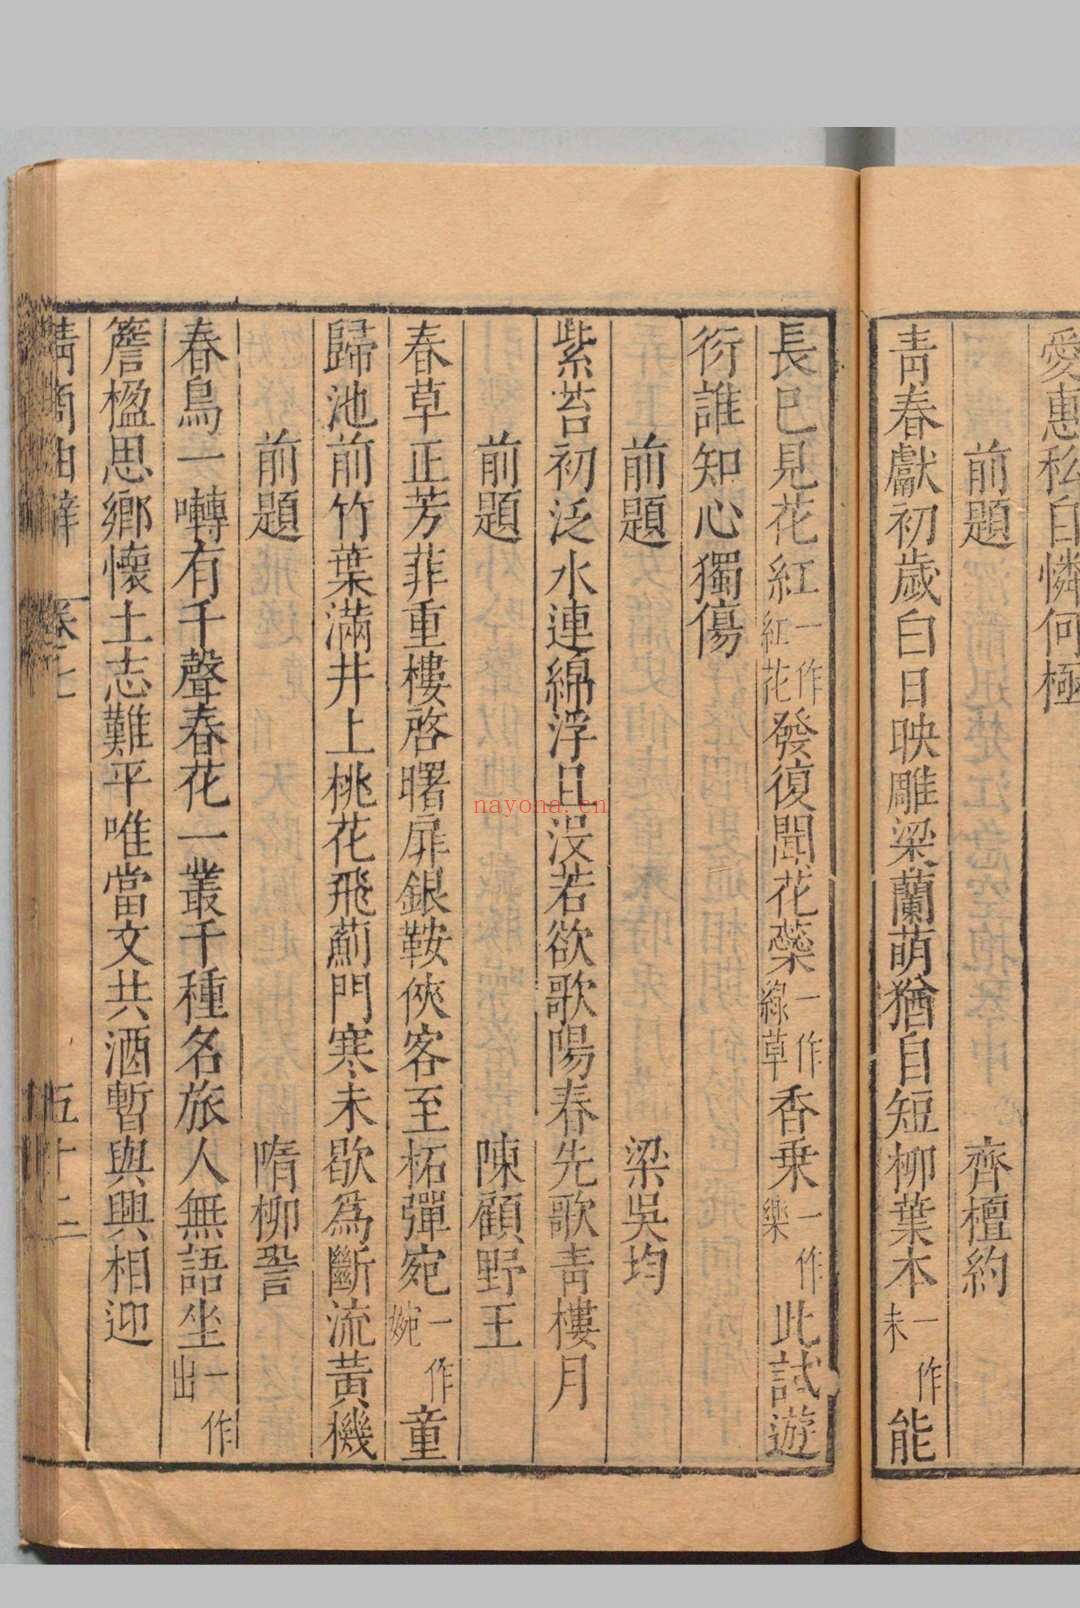 愛惠私自憐何極
前題 齊檀約
青春獻初歲白日映雕梁蘭萌猶自短柳葉本一作未能
長已見花紅一作紅花發復聞花蘂一作綠草香乗一作樂此試遊
衍誰知心獨傷
前題 梁吳均
紫苔初泛水連綿浮且没若欲歌陽春先歌青樓月
前題 陳顧野王
春草正芳菲重樓啓曙扉銀鞍俠客至柘彈宛一作婉童
歸池前竹葉滿井上桃花飛薊門寒未歇為斷流黃機
前題 隋柳䛒
春鳥一囀有千聲春花一叢千種名旅人無語坐一作出
簷楹思鄉懷土志難平唯當文共酒暫與興相迎
卷七 五十二
nayona.cn